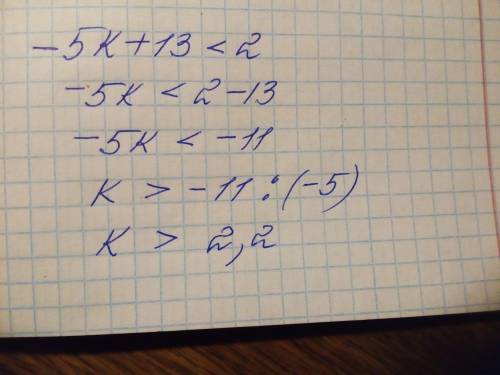 -5k+13 < 2
-5k < 2-13
-5k < -11
k > -11 : (-5)
k > 2,2